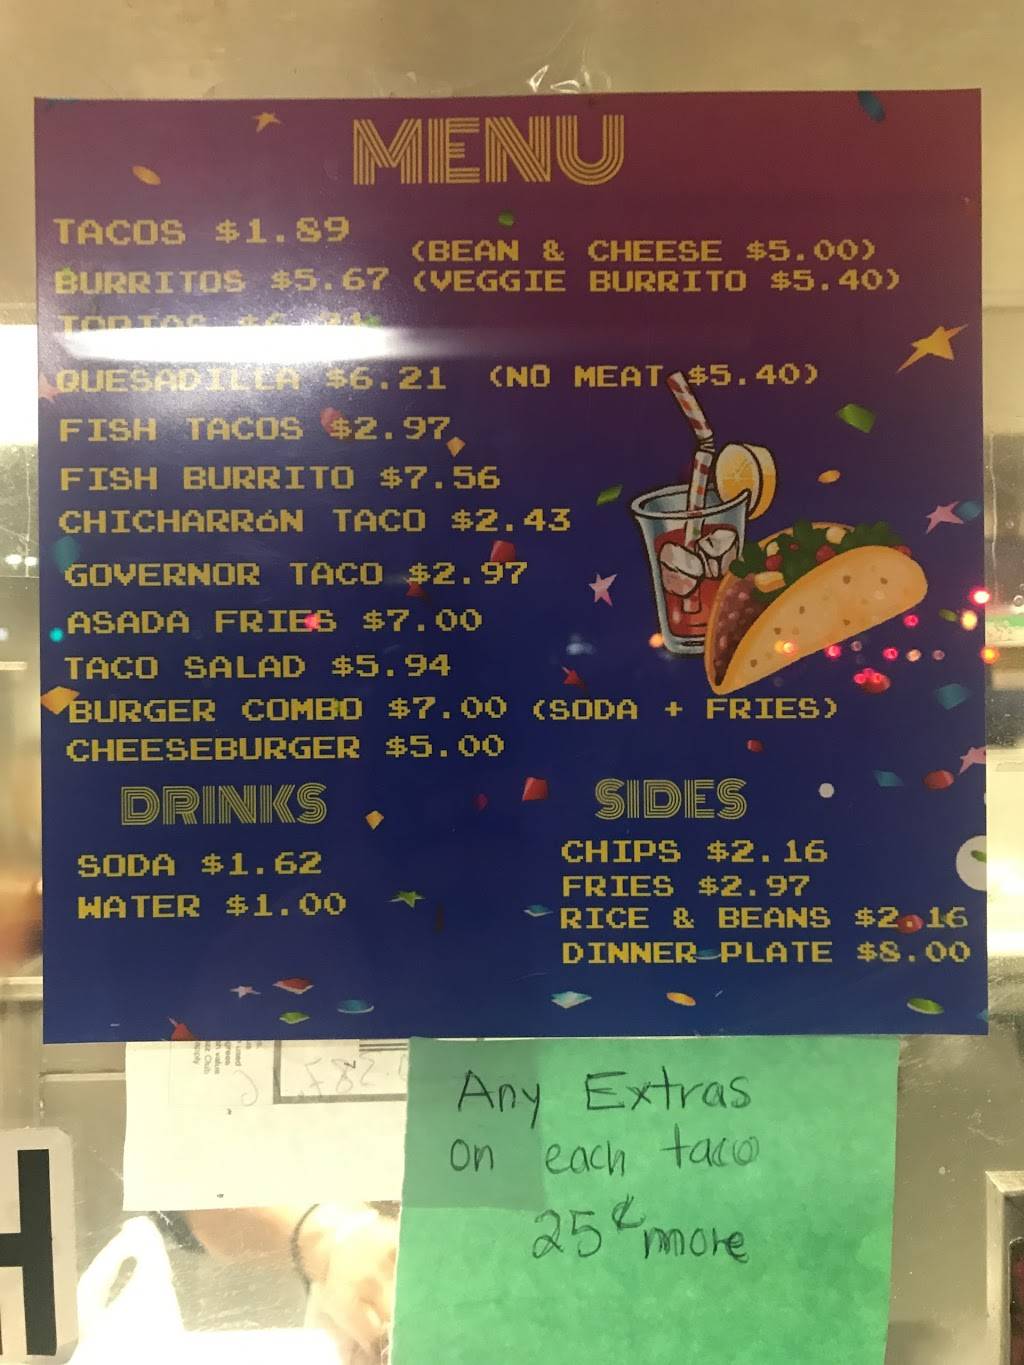 MENU
TACOS $1.89
(BEAN & CHEESE $5.00)
BURRITOS $5.67 (VEGGIE BURRITO $5.40)
QUESADILLA $6.21 (NO MEAT $5.40)
FISH TACOS $2.97
FISH BURRITO $7.56
CHICHARRóN TACO $2.43
GOVERNOR TACO $2.97
ASADA FRIES $7.00
TACO SALAD $5.94
BURGER COMBO $7.00 (SODA + FRIES)
CHEESEBURGER $5.00
DRINKS
SODA $1.62
WATER $1.00
SIDES
CHIPS $2.16
FRIES $2.97
RICE & BEANS $2.16
DINNER PLATE $8.00
Any Extras
on each taco
25¢ more
H